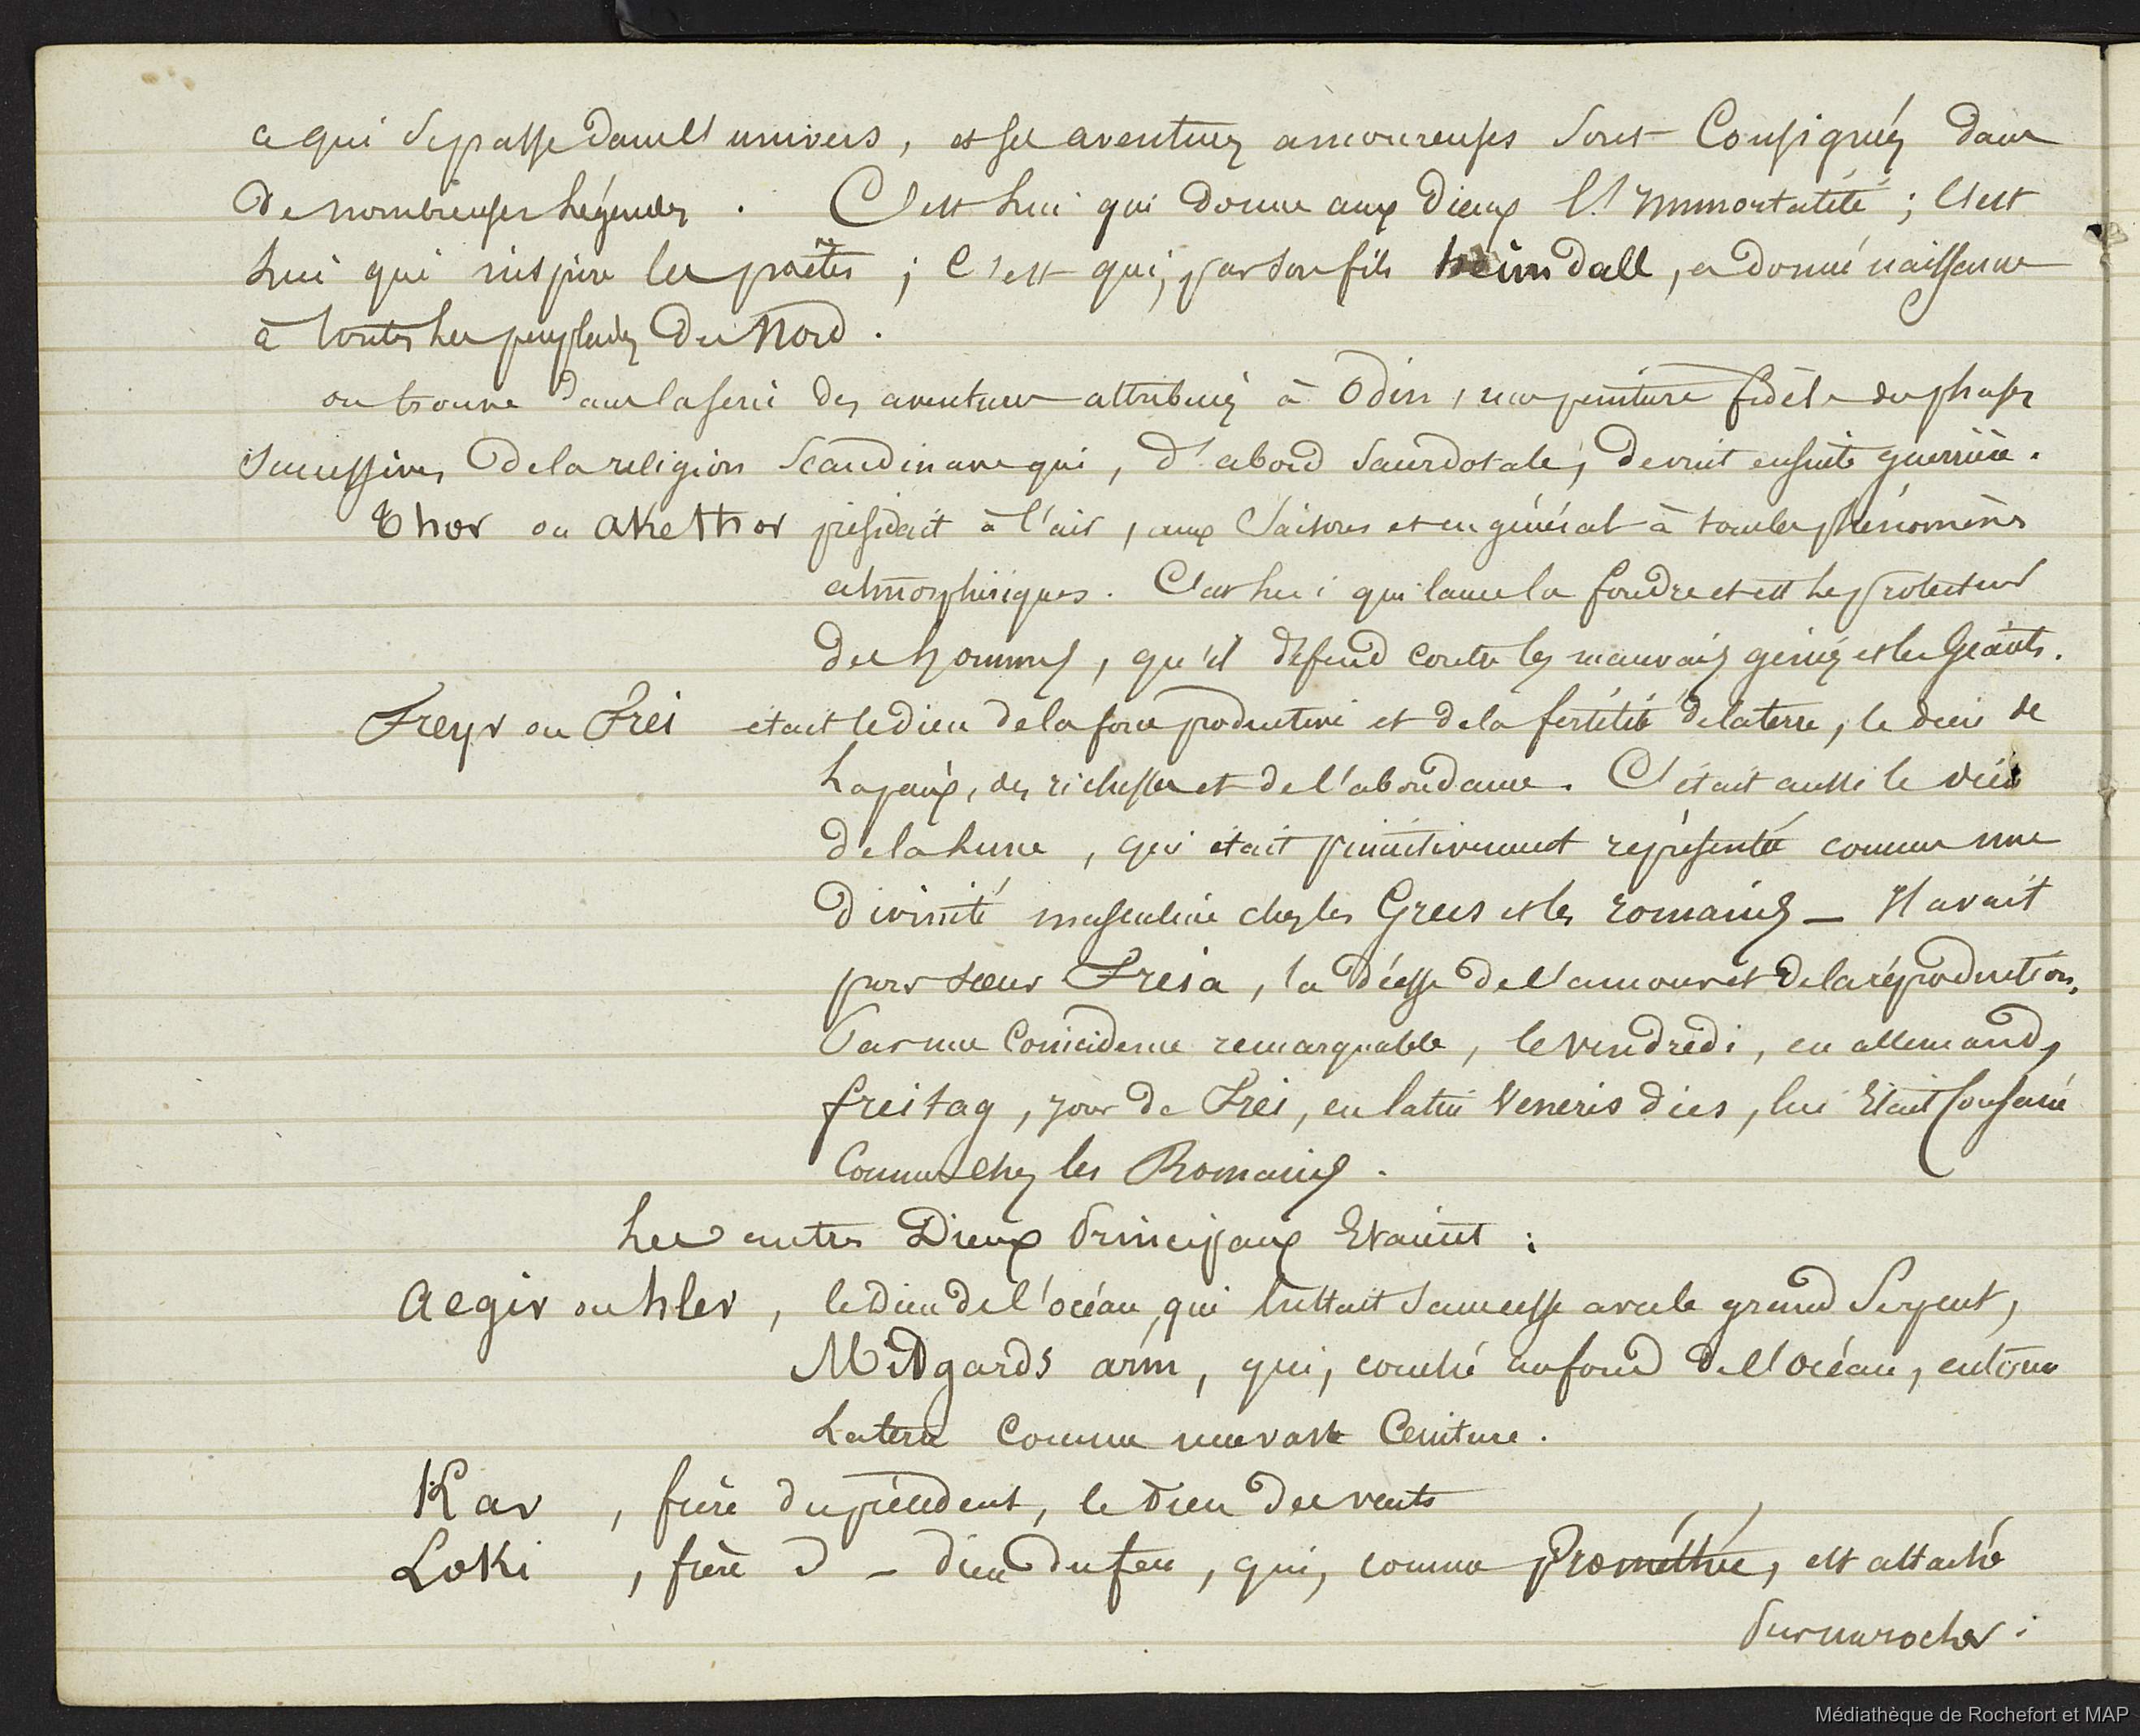 ce qui se passe dans l'univers, et ses aventures amoureuses sont Consignées dans
de nombreuses Légendes. C'est Lui qui donne aux Dieux l'Immortalité ; C'est
Lui qui inspire les poètes ; C'est qui, par son fils heimdall, a donné naissance
à toutes les peuplades du Nord.
on trouve dans la serie des aventures attribuées à Odin, une peinture fidèle des phases
Successives de la religion Scandinave qui, d'abord Sacerdotale, devint ensuite guerrière.
Thor ou AKethor présidait à l'air, aux Saisons et en général à tous les phénomènes
atmosphériques. C'est Lui qui lance la foudre et est Le protecteur
des hommes, qu'il défend contre les mauvais génies et les Géants.
Freyr ou Frei était le dieu de la force productive et de la fertilité de la terre, le dieu de
La paix, des richesses et de l'abondance. C'était aussi le dieu
de la Lune, qui était primitivement représentée comme une
Divinité masculine chez les Grecs et les romains _ Il avait
pour soeur Freia, la déesse de l'amour et de la réproduction,
Par une Coincidence remarquable, le vendredi, en allemand,
freitag, jour de Frei, en latin Veneris dies, lui était Consacré
Comme chez les Romains.
Les autres Dieux Principaux Etaient :
Aegir ou hler, le dieu de l'océan, qui luttait sans cesse avec le grand Serpent,
Midgards arm, qui, couché au fond de l'océan, entoure
La terre Comme une vaste Ceinture.
Kar, frère du précédent, le Dieu des vents
Loki, frère d _ dieu du feu, qui, comme Prométhée, est attaché
Sur un rocher.
Médiathèque de Rochefort et MAP